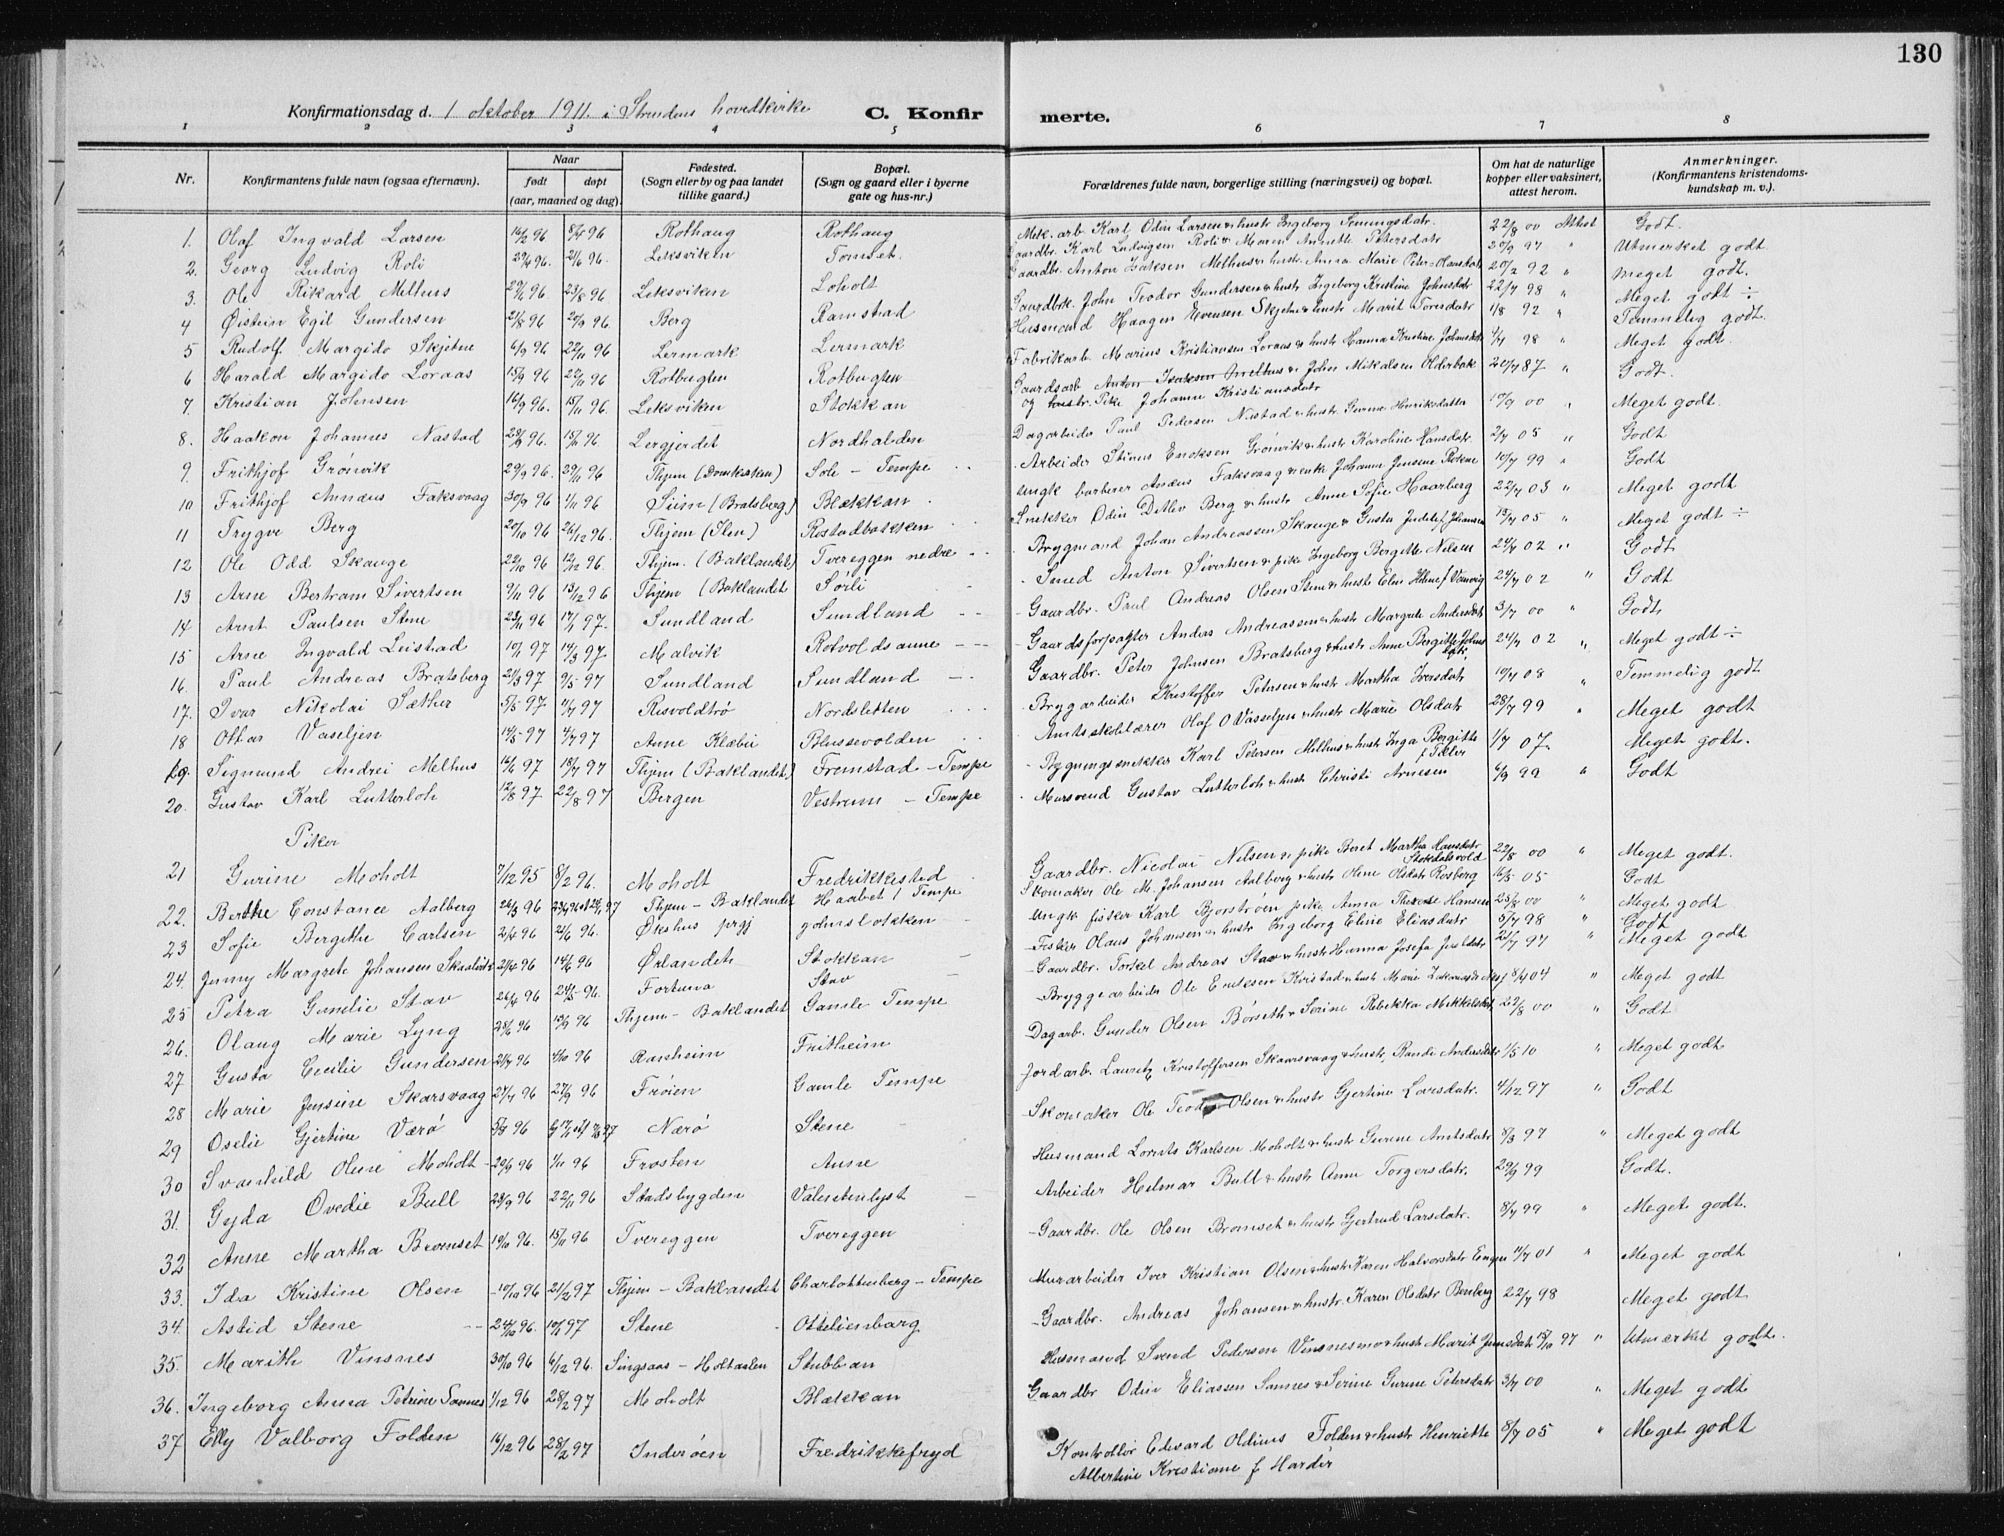 130
Konfirmationsdag d. 1 oktober 1911. i Strindens hovedkirke C. Konfir merte.
1 2 3 4 5 6 7 8
Nr. Konfirmantens fulde navn (ogsaa efternavn). Naar født døpt (aar, maaned og dag). Fødested. (Sogn eller by og paa landet tillike gaard.) Bopæl. (Sogn og gaard eller i byerne gate og hus-nr.) Forældrenes fulde navn, borgerlige stilling (næringsvei) og bopæl. Om hat de naturlige kopper eller vaksinert, attest herom. Anmerkninger. (Konfirmantens kristendoms- kundskap m. v.).
1. Olaf Ingvald Larsen 96 96 Rothaug Rothaug Mek. arb Karl Odin Larsen & hustr Ingeborg 22/8 00 Attest Godt.
2. Georg Ludvig Roli 96. 96. Leksviken Tomset. Gaardbr. Karl Ludvigsen Roli & Maren Annette Petersdatr 97 " Utmerket godt
3. Ole Rikard Melhus 96. 23/8 96 Leksviken Loholt Gaardbr. Anton Isaksen Melhus & hustr Anna Marie Peter-Hansdatr 92 " Meget godt.
4 Øistein Egil Gundersen 21/8 96 96. Berg Ramstad Gaardbr. John Teodor Gundersen & hustr Ingeborg Kristine Johnsdatr 98 " Meget godt ÷
5 Rudolf Margido Skjetne 6/9 96 22/11 96 Lermark Lermark Husmand Haagen Evensen Skjetne & hustr Marit Toresdatr 1/8 92 " Temmelig godt.
6 Harald Margido Loraas 15/9 96 22/11 96 Rotbugten Rotbugten Fabrikarb. Marius Kristiansen Loraas & hustr Hanna Kristine Johnsdatr 98 " Meget godt.
7. Kristian Johnsen 16/9 96. 15/11 96 Leksviken Stokkan Gaardsarb Anton Isaksen Melhus & John Mikalsen Olderbak 87 " Godt.
og hustr. Pike Johanne Kristiansdatr
8. Haakon Johannes Nastad 96. 96. Lergjerdet Nordhalden Dagarbeider Paul Pedersen Nastad & hustr Gurine Henriksdatter 00 " Meget godt.
9. Frithjof Grønvik 29/9 96. 29/11 96 Thjem (Domkirken) Sole - Tempe Arbeider Stinus Eriksen Grønvik & hustr Karoline Hansdatr. 05 " Godt
10 Frithjof Annæus Faksvaag 30/9 96 1/11 96 (Bratsberg) Blækkan. ungk barberer Annæus Faksvaag & enke Johanne Jensine 99 " Godt
11 Trygve Berg 20/10 96 26/12 96. Thjem (Ilen) Rostadbakken Snekker Odin Ditlev Berg & hustr Anne Sofie Haarberg 03 " Meget godt
12 Ole Odd Skauge 22/10 96 12/12 96. Thjem. (Baklandet) Tvereggen nedre Brygmand Johan Andreassen Skauge & Gusta Johansen 05 " Meget godt ÷
13 Arne Bertram Sivertsen 9/11 96 13/12 96 Thjem (Baklandet Sørli Smed Anton Sivertsen & pike Ingeborg Bergitte Nilsen 24/7 02 " Godt
14 Arnt Paulsen Stene 23/11 96 97. Sundland Sundland Gaardbr. Paul Andreas Olsen Stene & hustr Elen Helene f Vanvig 24/7 02 " Godt
15 Arne Ingvald Leistad 97 14/3 97 Malvik Rotvoldsanne Gaardsforpagter Anders Andreassen & hustr Margrete Andersdatr 3/7 00 " Godt
16. Paul Andreas Bratsberg 21/3 97 9/5 97 Sundland Sundland Gaardbr. Peter Johnsen Bratsberg & hustr Anne Bergitte Johnsdatr. 24/7 02 " Meget godt ÷
17. Ivar Nikolai Sæther 5/5 97. 97 Risvoldtrø Nordsletten Brygarbeider Kristoffer Petersen & hustr Martha Iversdatr 08 " Temmelig godt
18 Ottar Vaseljen 14/5 97 4/7 97 Anne Klæbu Blussevolden Amtsskolelærer Olaf O Vasseljen & hustr Marie Olsdatr 99 " Meget godt
19. Sigmund Andrei Melhus 97 18/7 97 Thjem (Baklandet) Fremstad - Tempe Bygningssnekker Karl Petersen Melhus & hustr Inga Bergitte f Tiller 1/7 07. Meget godt.
20. Gustav Karl Lutterloh 12/8 97 22/8 97 Bergen Vestrum - Tempe Mursvend Gustav Lutterloh & hustr Christi Arnesen 6/9 99 " Godt
Piker
21 Gurine Moholt 7/12 95 8/2 96. Moholt Fredrikkestad Gaardbr. Nicolai Nilsen & pike Beret Martha Hansdatr Stokdalsvold 22/8 00 " Meget godt.
22. Berthe Constance Aalberg 26/3 96 Thjem - Baklandet Haabet / Tempe Skomaker Ole M. Johansen Aalberg & hustr Oline Olsdatr Rosberg 05 Godt
23 Sofie Bergithe Carlsen 2/4 96 96. Økshus prgj gomslokken ungk fisker Karl Bjorstrøen pike Anna Therese Hansen 00 " Meget godt
24. Jenny Margrete Johansen 96 14/6 96 Ørlandet Stokkan Fisker Olaus Johansen & hustr Ingeborg Eline Eliasdatr 98 " Godt
25 Petra Gunelie Stav 26/4 96 24/5 96. Fortuna Stav Gaardbr. Torkel Andreas Stav & hustr Hanna Josefa 97 " Meget godt
26. Olaug Marie Lyng 96 96 Thjem - Baklandet Gamle Tempe Bryggearbeider Ole Endesen Kvistad & hustr Marie 04 " Meget godt
27 Gusta Cecilie Gundersen 96 4/10 96 Ranheim Fritheim Dagarb. Gunder Olsen Børseth & Serine Rebekka Mikkelsdatr 22/8 00 " Godt
28 Marie Jensine Skarsvaag 27/7 96 27/9 96 Frøien Gamle Tempe Jordarb. Lauritz Kristoffersen Skaarsvaag & hustr, Randi Andersdatr 1/5 10 " Meget godt
29 Oselie Gjertine Værø 96 Nærø Stene Skomaker Ole Teodor Olsen & hustr Gjertine Larsdatr. 4/12 97 " Godt
30 Svanhild Oline Moholt 96 1/11 96 Frosten Anne Husmand Lorents Karlsen Moholt & hustr Gurine Arntsdatr 8/3 97 " Meget godt
31. Gyda Ovedie Bull 28/9 96 22/11 96 Stadsbygden Valentenlyst Arbeider Helmar Bull & hustr Anne Torgersdatr. 29/9 99 Godt.
32 Anne Martha Bromset 96. 15/11 96 Tvereggen Tvereggen Gaardbr. Ole Olsen Bromset & hustr Gjertrud Larsdatr. 8/7 99 " Meget godt.
33. Ida Kristine Olsen 96 21/2 97 Thjem - Baklandet Charlottenberg - Tempe Murarbeider Iver Kristian Olsen & hustr Karen Halvorsdatr Engen 01 " Meget godt
34. Astid Stene 24/10 96. 97 Stene Ottelienborg Gaardbr. Andreas Johansen & hustr. Karen Olsdatr Benberg 22/7 98 Meget godt
35. Marith Vinsnes 30/10 96 6/12 96. Singsaas - Holtaalen Stubban Husmand Svend Pedersen Vinsnesmo & hustr Marit Jensdatr 97 " Utmerket godt.
36. Ingeborg Anna Petrine Sannes 1/12 96 28/2 97 Moholt Blækkan Gaardbr Odin Eliassen Sannes & Serine Gurine Petersdatr 3/7 00 " Meget godt
37 Elly Valborg Folden 16/12 96 28/2 97 Inderøen Fredrikkefryd Kontrollør Edvard Oldinus Folden & hustr Henriette 8/7 05 " Meget godt
Albertine Kristiane f Harder